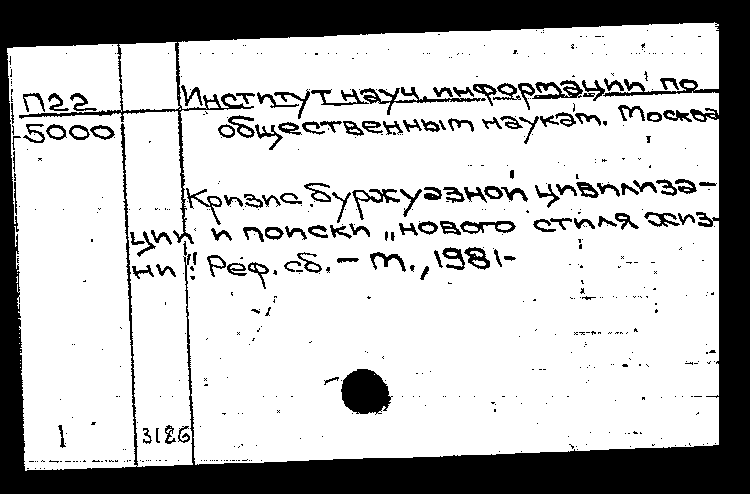 П22
5000
Институт науч. информации по
общественным наукам. Москва
Кризис буржуазной цивилиза-
ции и поиски „нового стиля жиз-
ни". Реф. сб. – М., 1981-
1
3186